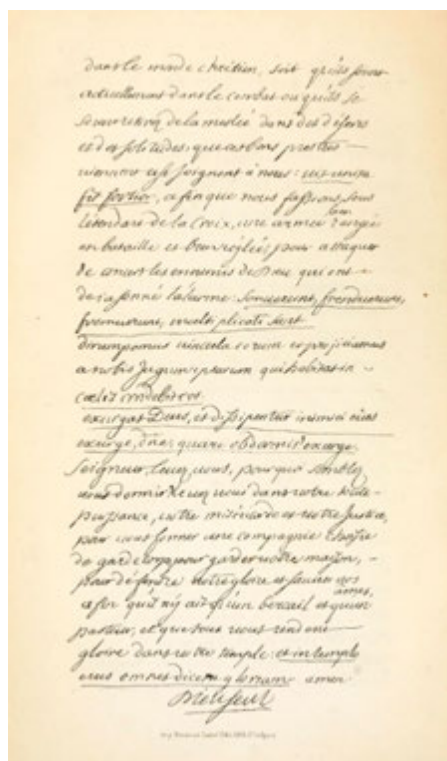 dans le monde chrétien, soit qu'ils soient
actuellement dans le combat ou qu'ils se
de la meslée dans des déserts
et des solitudes, que ces bons prestres
se joignent à nous: vis unita
fit fortior, afin que nous fassions, sous
l'étendart de la Croix, une armée bien rangée
en bataille et bien réglée, pour attaquer
de concert les ennemis de Dieu qui ont
déja sonné l'alarme: sonuerunt, frenduerunt,
fremuerunt, multiplicati sunt
dirumpamus vincula eorum et projiciamus
a nobis jugum ipsorum qui habitat in
cœlis irridebit eos
exurgat Deus, et dissipentur inimici eius
exurge, dne, quare obdormis? exurge
Seigneur, levez vous, pourquoi semblez
vous dormir? levez vous dans votre toute
puissance, votre miséricorde et votre justice,
pour vous former une compagnie choisie
de garde corps pour garder votre maison,
pour défendre votre gloire et sauver vos
ames,
afin qu'il n'y ait qu'un bercail et qu'un
pasteur, et que tous vous rendent
gloire dans votre temple: et in templo
eius omnes dicent gloriam amen
Dieu seul